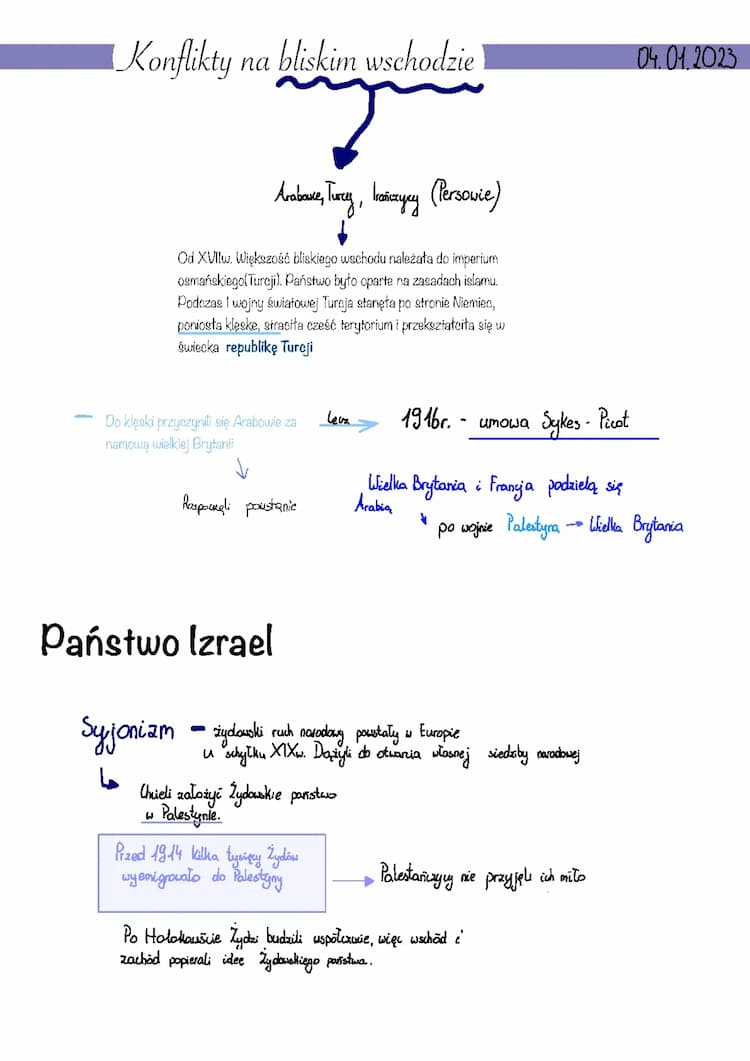 Konflikty na bliskim wschodzie
04.01.2023
Arabowie, Turcy, Irańczycy (Persowie)
Od XVIIw. Większość bliskiego wschodu należała do imperium
osmańskiego(Turcji). Państwo było oparte na zasadach islamu.
Podczas I wojny światowej Turcja stanęła po stronie Niemiec,
poniosła klęske, straciła cześć terytorium i przekształciła się w
świecka republikę Turcji
– Do klęski przyczynili się Arabowie za
namową wielkiej Brytanii
lecz
1916r. - umowa Sykes - Picot
Rozpoczęli powstanie
Wielka Brytania i Francja podzielą się
Arabią
po wojnie Palestyna → Wielka Brytania
Państwo Izrael
Syjonizm – żydowski ruch narodowy powstały w Europie
u schyłku XIXw. Dążyli do otwania własnej siedziby narodowej
Chcieli założyć Żydowskie państwo
w Palestynie.
Przed 1914 kilka tysięcy Żydów
wyemigrowało do Palestyny
Palestańczycy nie przyjęli ich miło
Po Holokauście Żydzi budzili współczucie, więc wschód i
zachód popierali idee Żydowskiego państwa.